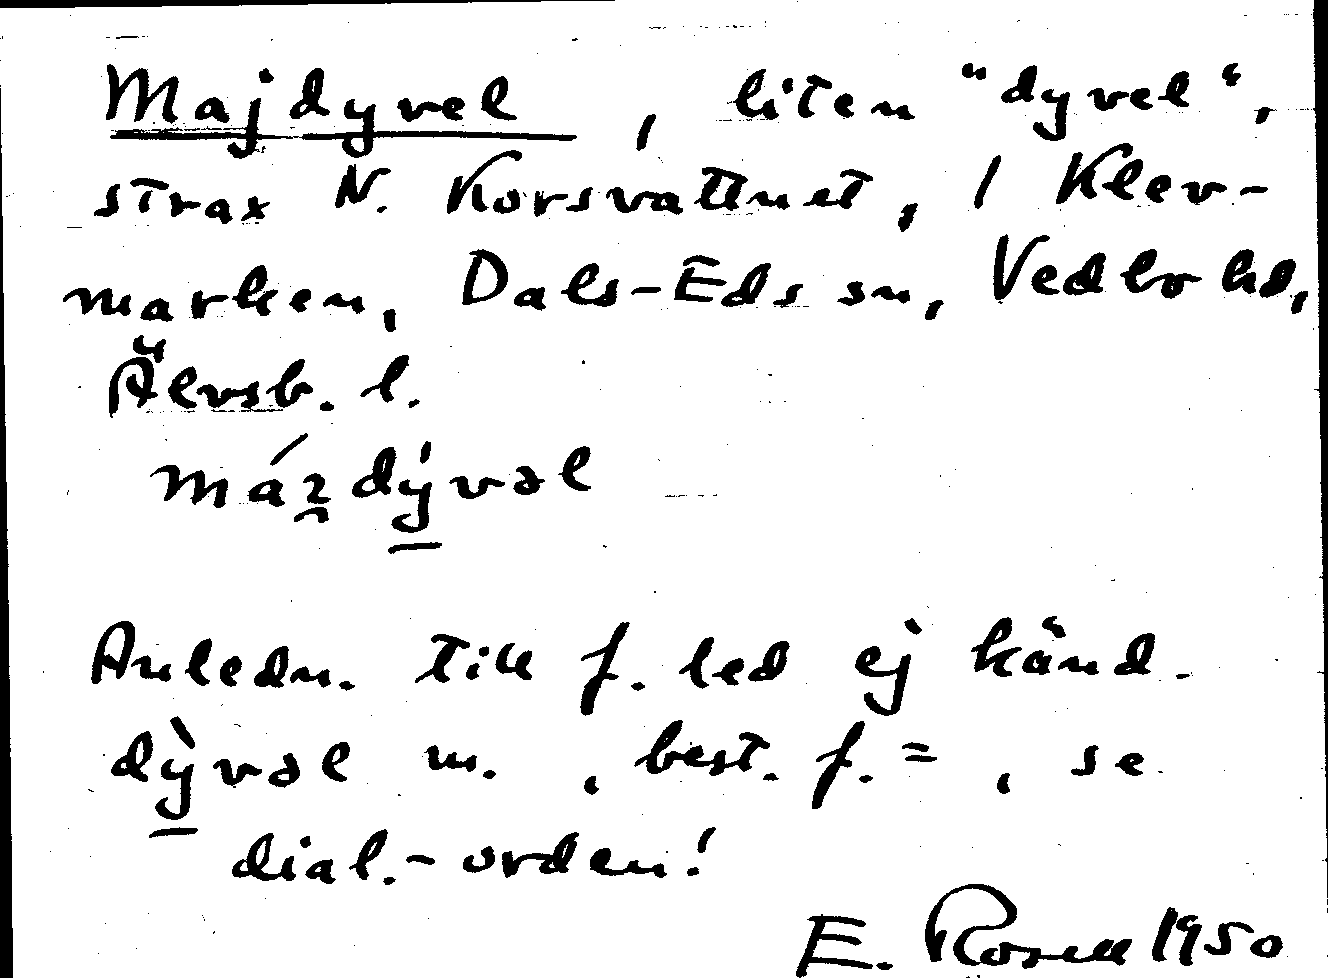 Majdyvel, liten "dyvel",
strax N. Korsvattnet, i Klev-
marken, Dals-Eds sn, Vedbo hd,
Älvsb. l.
Anledn. till f. led ej känd.
dỳvəl m., best. f. =, se
dial.-orden!
E. Rosell 1950